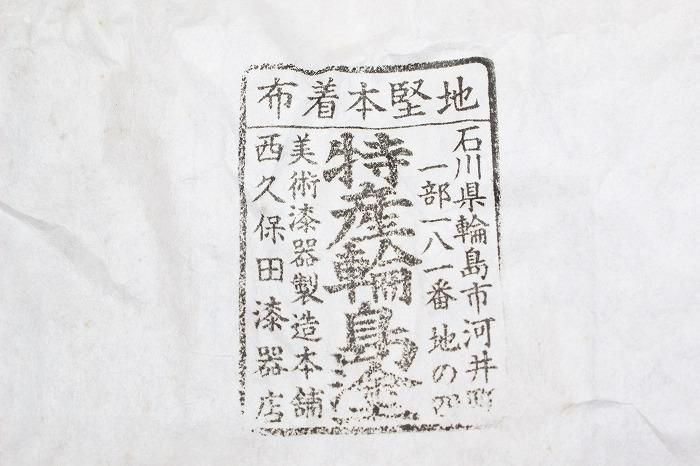 地堅本着布
石川県輪島市河井町
一部一八一番地の四
特産輪島塗
美術漆器製造本舗
西久保田漆器店